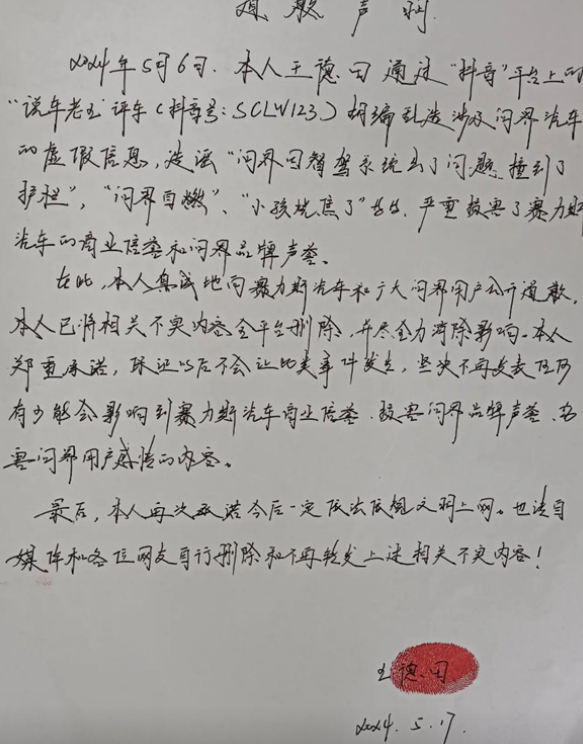 道歉声明
2024年5月6日,本人王德田通过“抖音”平台上的
“说车老王”评车(抖音号:SCLW123)胡编乱造涉及问界汽车
的虚假信息,造谣“问界因智驾系统出了问题,撞到了
护栏”,“问界自燃”、“小孩烧焦了”等等,严重损害了赛力斯
汽车的商业信誉和问界品牌声誉。
在此,本人真诚地向赛力斯汽车和广大问界用户公开道歉,
本人已将相关不实内容全平台删除,并尽全力消除影响。本人
郑重承诺,保证以后不会让此类事件发生,坚决不再发表任何
有可能会影响到赛力斯汽车商业信誉、损害问界品牌声誉、伤
害问界用户感情的内容。
最后,本人再次承诺今后一定依法依规文明上网。也请自
媒体和各位网友自行删除和不再转发上述相关不实内容!
王德田
2024.5.17.